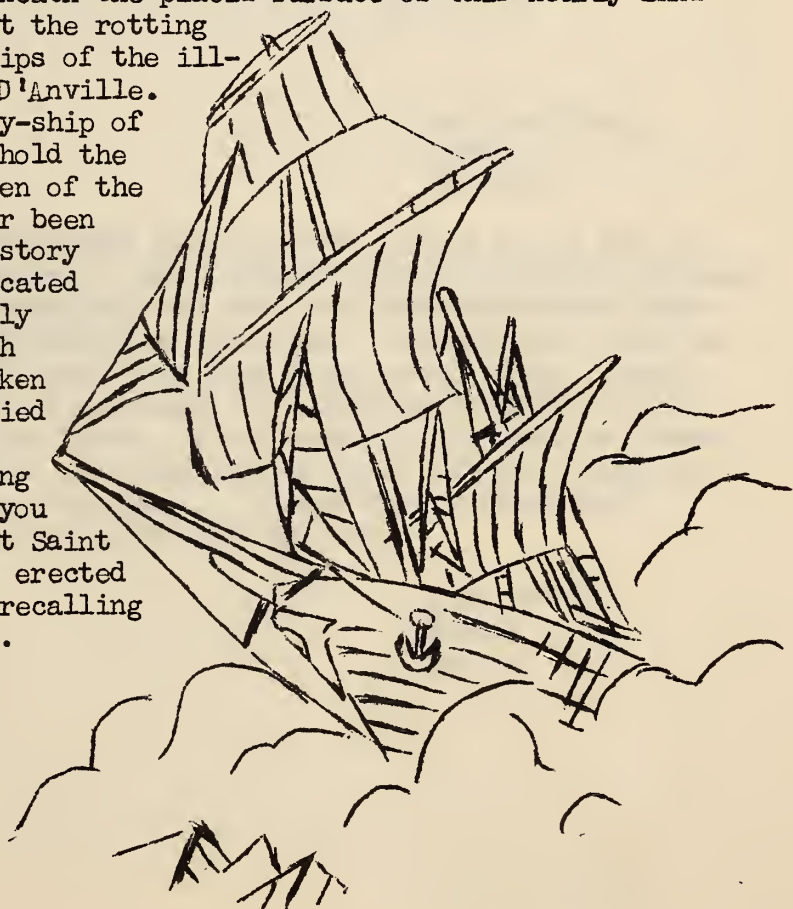 t the rotting
ips of the ill-
D'Anville.
y-ship of
hold the
en of the
r been
story
cated
ly
h
ken
ied
ng
you
t Saint
erected
recalling
.